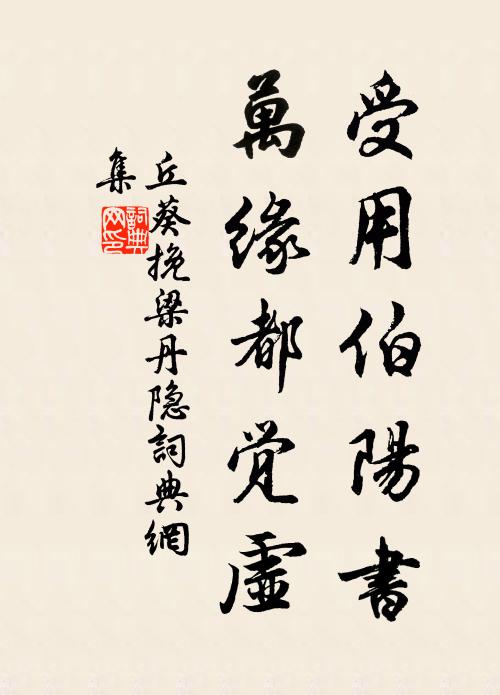 受用伯陽書
萬緣都覺虛
丘葵挽梁丹隐詞典網
集
詞典
网印